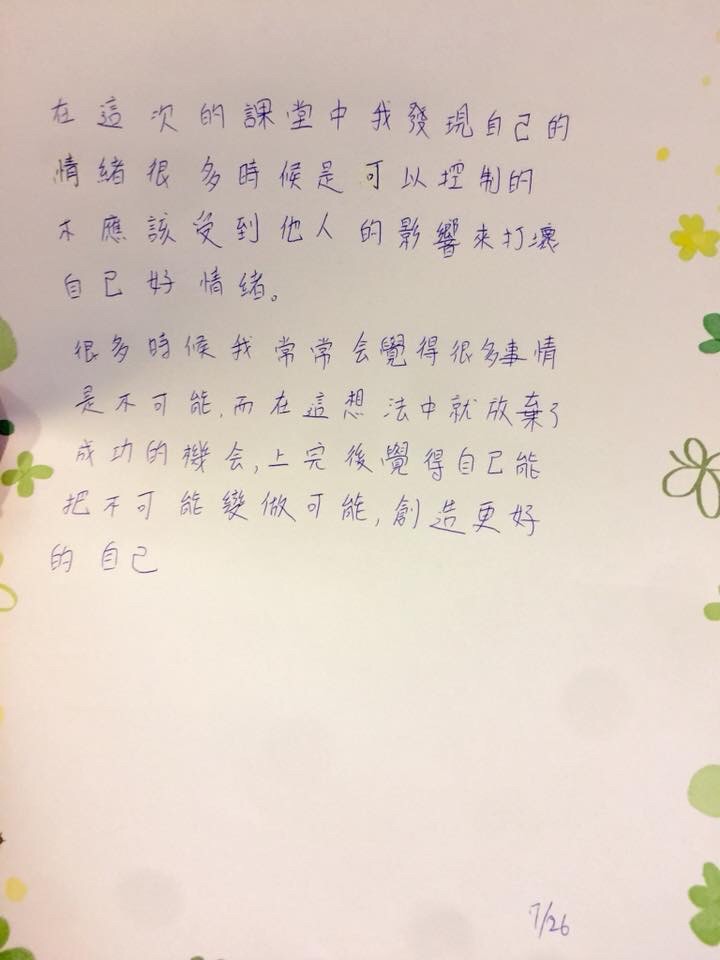 在這次的課堂中我發現自己的
情緒很多時候是可以控制的
不應該受到他人的影響來打壞
自已好情緒。
很多時候我常常会覺得很多事情
是不可能,而在這想法中就放棄了
成功的機会,上完後覺得自己能
把不可能變做可能,創造更好
的自己
7/26